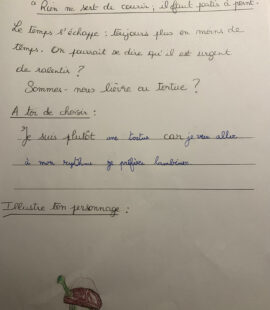 " Rien ne sert de courir, il faut partir à point.
Le temps s'échappe : toujours plus en moins de
temps. On pourrait se dire qu'il est urgent
de ralentir ?
Sommes-nous lièvre ou tortue ?
A toi de choisir :
Je suis plutôt une tortue car je veux aller
à mon rythme je préfère lambiner
Illustre ton personnage :